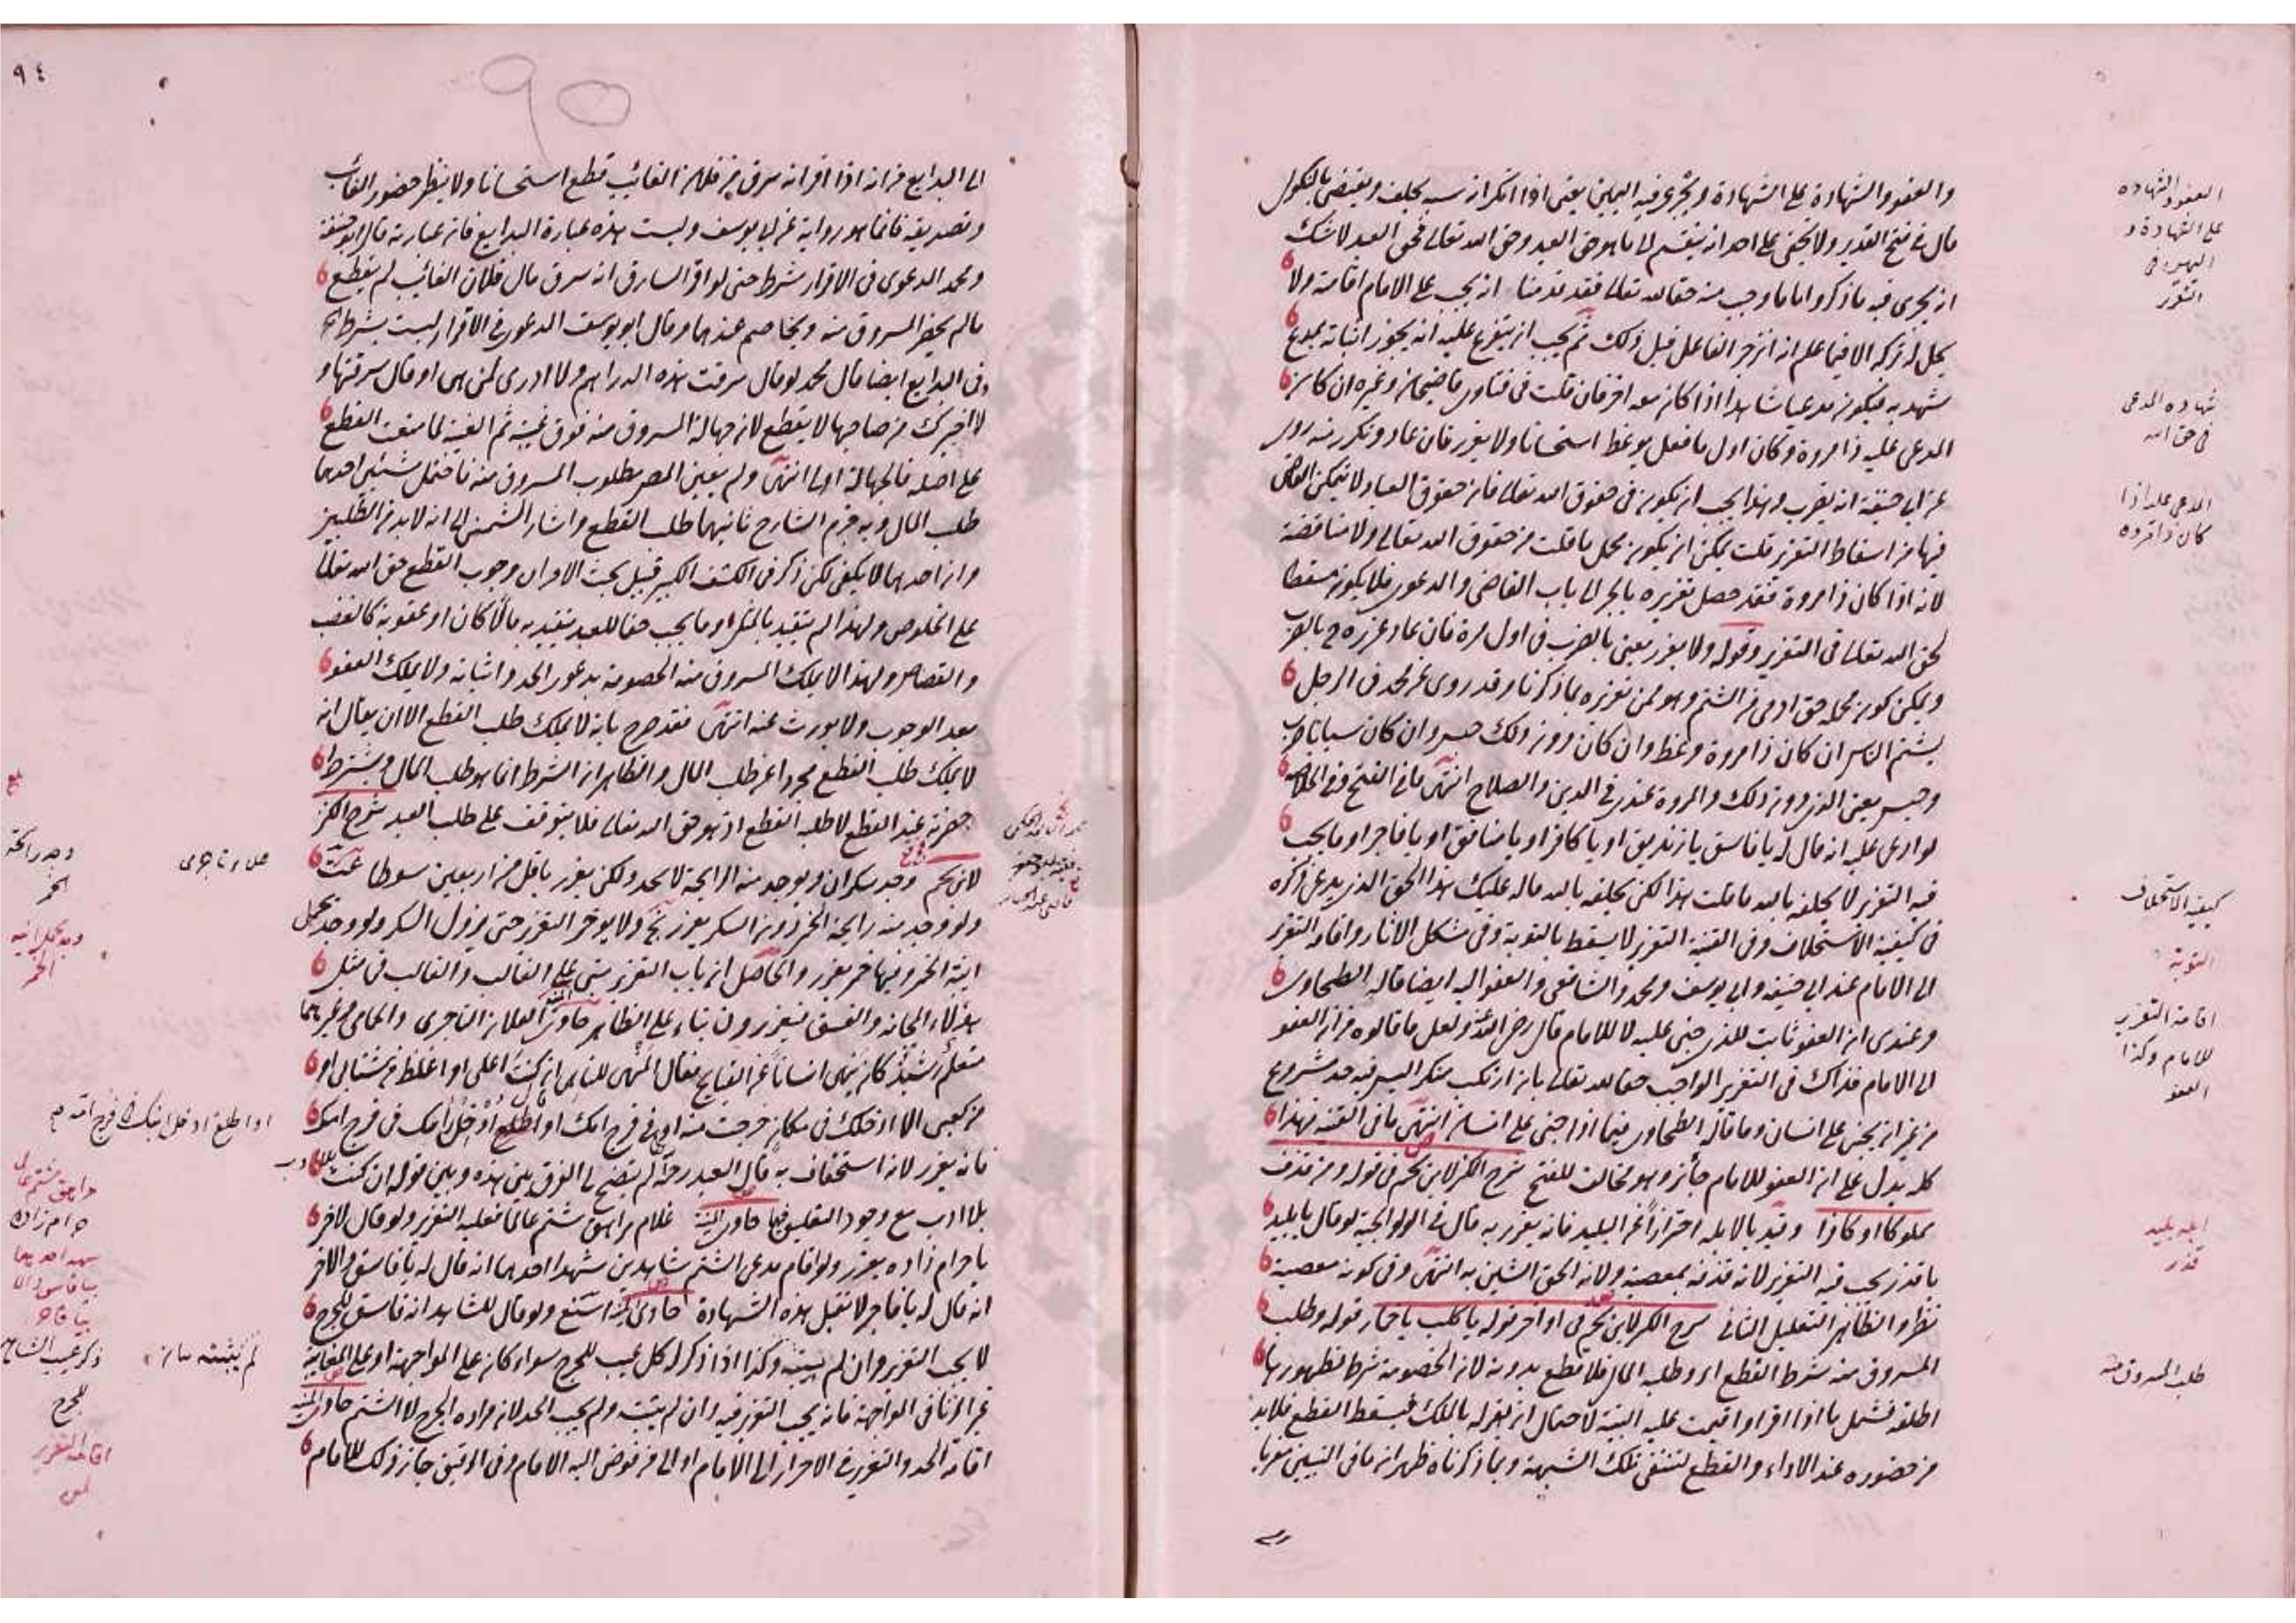 والعفو والشهادة على الشهادة ويجرى فيه اليمين يعنى اذا انكر انه سبه يحلف ويقضى بالنكول
قال فى فتح القدير ولا يخفى على احد انه ينقسم الى ما هو حق العبد وحق الله تعالى فحق العبد لا شك
ان يجرى فيه ما ذكر واما ما وجب منه حقا لله تعالى فقد قدمنا انه يجب على الامام اقامته ولا
يحل له تركه الا فيما علم انه انزجر الفاعل قبل ذلك ثم يجب ان يتفرع عليه انه يجوز اثباته بمدع
شهد به فيكون مدعيا شاهدا اذا كان معه اخر فان قلت فى فتاوى قاضيخان وغيره ان كان
المدعى عليه ذا مروة وكان اول ما فعل يوعظ استحسانا ولا يعزر فان عاد وتكرر منه روى
عن ابى حنيفة انه يضرب وهذا يجب ان يكون فى حقوق الله تعالى فان حقوق العباد لا يتمكن القاضى
فيها من اسقاط التعزير قلت يمكن ان يكون محل ما قلت من حقوق الله تعالى ولا مناقضة
لانه اذا كان ذا مروة فقد حصل تعزيره بالجر الى باب القاضى والدعوى فلا يكون مسقطا
لحق الله تعالى فى التعزير وقوله ولا يعزر يعنى بالضرب فى اول مرة فان عاد عزره ح بالضرب
ويمكن كون محله حق ادمى من الشتم وهو ممن تعزيره بما ذكرنا وقد روى عن محمد فى الرجل
يشتم الناس ان كان ذا مروة وعظ وان كان دون ذلك حبس وان كان سبابا ضرب
وحبس يعنى الذى دون ذلك والمروة عندى فى الدين والصلاح انتهى ما فى الفتح وفى الخلاصة
لو ادعى عليه انه قال له يا فاسق يا زنديق او يا كافر او يا منافق او يا فاجر او ما يجب
فيه التعزير لا يحلفه بالله ما قلت هذا لكن يحلفه بالله ما له عليك هذا الحق الذى يدعى ذكره
فى كيفية الاستحلاف وفى القنية التعزير لا يسقط بالتوبة وفى مشكل الاثار واقامة التعزير
الى الامام عند ابى حنيفه وابى يوسف ومحمد والشافعى والعفو اليه ايضا قاله الطحاوى
وعندى ان العفو ثابت للذى جنى عليه لا للامام قال رضى الله عنه ولعل ما قالوه من ان العفو
الى الامام فذاك فى التعزير الواجب حقا لله تعالى بان ارتكب منكرا ليس فيه حد مشروع
من غير ان يجنى على انسان وما قاله الطحاوى فيما اذا جنى على انسان انتهى ما فى القنيه فهذا
كله يدل على ان العفو للامام جائز وهو مخالف للفتح شرح الكنز لابن نجيم فى قوله ومن قذف
مملوكا او كافرا وقيد بالابله احترازا عن البليد فانه يعزر به قال فى الولوالجية لو قال يا بليد
يا قذر يجب فيه التعزير لانه قذفه بمعصية ولانه الحق الشين به انتهى وفى كونه معصية
نظر والظاهر التعليل الثانى شرح الكنز لابن نجيم فى اواخر قوله يا كلب يا حمار قوله وطلب
المسروق منه شرط القطع اى وطلبه المال فلا قطع بدونه لان الخصومة شرط لظهورها
اطلقه فشمل ما اذا اقر او اقيمت عليه البينة لاحتمال ان يقر له بالملك فيسقط القطع فلا بد
من حضوره عند الاداء والقطع لتنتفى تلك الشبهة وبما ذكرناه ظهر ان ما فى التبيين معزيا
العفو والشهاده
على الشهادة و
اليمين فى
التعزر
شهاده المدعى
فى حق الله
المدعى عليه اذا
كان ذا مروه
كيفيه الاستحلاف
التوبه
اقامة التعزير
للامام وكذا
العفو
ابله بليد
قذر
طلب المسروق منه
٩٤
الى البدايع من انه اذا اقر انه سرق من فلان الغائب قطع استحسانا ولا ينظر حضور الغائب
وتصديقه فانما هو رواية عن ابى يوسف وليست هذه عبارة البدايع فان عبارته قال ابو حنيفة
ومحمد الدعوى فى الاقرار شرط حتى لو اقر السارق انه سرق مال فلان الغائب لم يقطع
ما لم يحضر المسروق منه ويخاصم عندهما وقال ابو يوسف الدعوى فى الاقرار ليست بشرط الخ
وفى البدايع ايضا قال محمد لو قال سرقت هذه الدراهم ولا ادرى لمن هى او قال سرقتها و
لا اخبرك من صاحبها لا يقطع لان جهالة المسروق منه فوق غيبته ثم الغيبة لما منعت القطع
على اصله فالجهالة اولى انتهى ولم يعين المص مطلوب المسروق منه فاحتمل شيئين احدهما
طلب المال وبه جزم الشارح ثانيهما طلب القطع واشار الشمنى الى انه لا بد من الطلبين
وان احدهما لا يكفى لكن ذكر فى الكشف الكبير قبيل بحث الامر ان وجوب القطع حق الله تعالى
على الخلوص ولهذا لم يتقيد بالمثل وما يجب حقا للعبد يتقيد به مالا كان او عقوبة كالغصب
والقصاص ولهذا لا يملك المسروق منه الخصومة بدعوى الحد واثباته ولا يملك العفو
بعد الوجوب ولا يورث عنه انتهى فقد صرح بانه لا يملك طلب القطع الا ان يقال انه
لا يملك طلب القطع مجردا عن طلب المال والظاهر ان الشرط انما هو طلب المال ويشترط
حضرته عند القطع لا طلبه القطع اذ هو حق الله تعالى فلا يتوقف على طلب العبد شرح الكنز
لابن نجيم وجد سكران ويوجد منه الرايحة لا يحد ولكن يعزر باقل من اربعين سوطا
ولو وجد منه رايحة الخمر دون السكر يعزر ولا يوخر التعزر حتى يزول السكر ولو وجد يحمل
انية الخمر وفيها خمر يعزر والحاصل ان باب التعزير مبنى على الغالب والغالب فى مثل
هؤلاء المجانه والفسق فيعزرون بناء على الظاهر حاوى القنيه العلا التاجرى والحمامى وغيرهما
متعلم رشيد كان ينهى انسانا عن القبايح فقال المنهى للناهى ان كنت اعلى او اغلظ من
من كعبى الا ادخلك فى مكان خرجت منه اى فى فرج امك او اطلع ادخل راسك فى فرج امك
فانه يعزر لانه استخفاف به قال العبد رحمه الله لم يتضح لى الفرق بين هذه وبين قوله ان كنت
بلا ادب مع وجود التعليق فيها حاوى القنيه غلام مراهق شتم عالما فعليه التعزير ولو قال لاخر
يا حرام زاده يعزر ولو اقام مدعى الشتم شاهدين شهد احدهما انه قال له يا فاسق والاخر
انه قال له يا فاجر لا تقبل هذه الشهادة حاوى القنيه ولو قال للشاهد انه فاسق للجرح
لا يجب التعزير وان لم يبينه وكذا اذا ذكر له كل عيب للجرح سواء كان على المواجهة او على المغايبة
غير الزنا فى المواجهة فانه يجب التعزير فيه وان لم يثبت ولم يجب الحد لان مراده الجرح لا الشتم حاوى القنيه
اقامة الحد والتعزير فى الاحرار الى الامام او الى من فوض اليه الامام وفى الرقيق جاز ذلك للامام
وجد رايحة
الخمر
علاء تاجرى
وجد يحمل انيه
الخمر
او اطلع ادخل راسك فى فرج امك
مراهق شتم عالما
حرام زاده
شهد احدهما
بيا فاسق والا
بيا فاجر
لم يثبته
ذكر عيب الشاهد
للجرح
اقامة التعزير
لمن